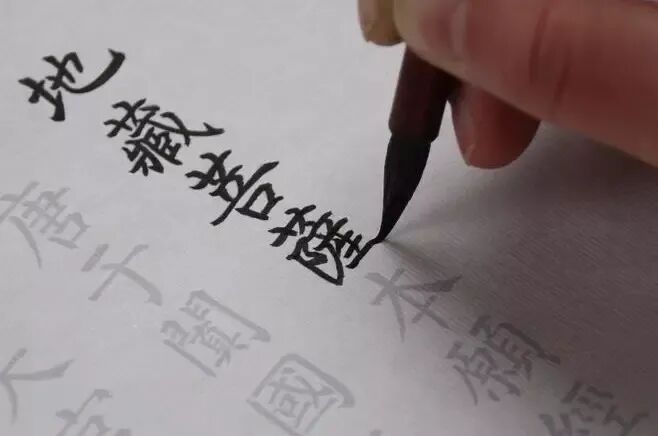 地藏菩薩本願經
唐于闐國
大